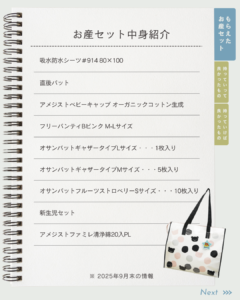 お産セット中身紹介
吸水防水シーツ#914 60×100
直後パット
アメジストベビーキャップ オーガニックコットン生成
フリーパンティBピンク M-Lサイズ
オサンパットギャザータイプLサイズ・・・1枚入り
オサンパットギャザータイプMサイズ・・・5枚入り
オサンパットフルーツストロベリーSサイズ・・・10枚入り
新生児セット
アメジストファミレ清浄綿20入PL
※ 2025年9月末の情報
もらえた
お産セット
Next >>>